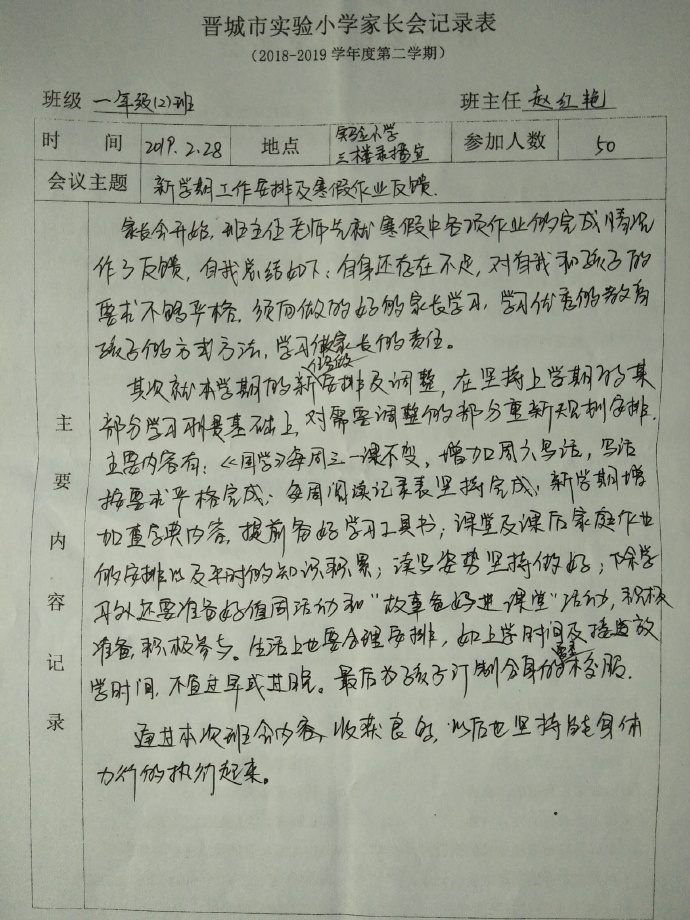 晋城市实验小学家长会记录表
（2018-2019学年度第二学期）
班级 一年级(2)班 班主任 赵红艳
时间 2019.2.28 地点 实验小学三楼录播室 参加人数 50
会议主题 新学期工作安排及寒假作业反馈.
主要内容记录
家长会开始，班主任老师先就寒假中各项作业的完成情况
作了反馈，自我总结如下：自身还存在不足，对自我和孩子的
要求不够严格，须向做的好的家长学习，学习优秀的教育
孩子的方式方法，学习做家长的责任。
其次就本学期的新任务安排及调整，在坚持上学期的某
部分学习基础上，对需要调整的部分重新规划安排.
主要内容有：《同学》每周三一课不变，增加周六写话，写话
按要求严格完成；每周阅读记录表坚持完成；新学期增
加查字典内容，提前备好学习工具书；课堂及课后家庭作业
的安排以及平时的知识积累；读写姿势坚持做好；除学
习外还要准备好值周活动和“故事爸妈进课堂”活动，积极
准备，积极参与。生活上也要合理安排，如上学时间及接送放
学时间，不宜过早或过晚。最后为孩子订制合身的校服.
通过本次班会内容，收获良多，以后也坚持身体
力行的执行起来。